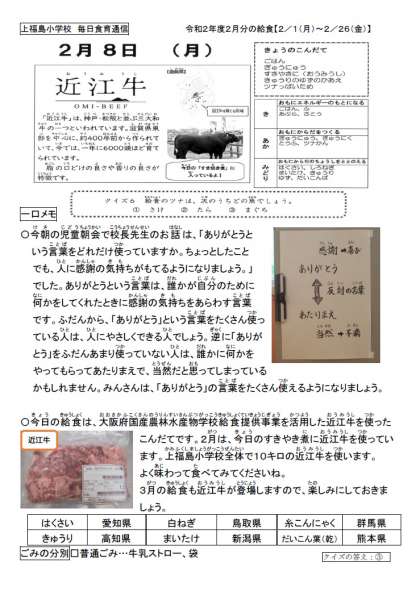 上福島小学校 毎日食育通信
令和2年度2月分の給食【2/1(月)~2/26(金)】
2月 8日 (月)
近江牛
OMI-BEEF
「近江牛」は、神戸・松阪と並ぶ三大和
牛の一つといわれています。滋賀県東
部を中心に、約400年前から作られて
いて、今では、一年に6000頭ほど育て
られています。
脂の口どけの良さや香りの良さが
特徴です。
今日の「すき焼き煮」に
入っているよ!
きょうのこんだて
ごはん
ぎゅうにゅう
すきやきに(おうみうし)
きゅうりのゆずのかあえ
ツナっぱいため
き
おもにエネルギーのもとになる
あか
おもにからだをつくる
ぎゅうにゅう、ぎゅうにく
とうふ、ツナかん
みどり
クイズ6 給食のツナは、次のうちどの魚でしょう。
① さけ ② たら ③ まぐろ
一口メモ
○今朝の児童朝会で校長先生のお話は、「ありがとうと
いう言葉をどれだけ使っていますか。ちょっとしたこと
でも、人に感謝の気持ちがもてるようになりましょう。」
でした。ありがとうという言葉は、誰かが自分のために
何かをしてくれたときに感謝の気持ちをあらわす言葉
です。ふだんから、「ありがとう」という言葉をたくさん使っ
ている人は、人にやさしくできる人でしょう。逆に「ありが
とう」をふだんあまり使っていない人は、誰かに何かを
やってもらってあたりまえで、当然だと思ってしまっている
かもしれません。みんさんは、「ありがとう」の言葉をたくさん使えるようになりましょう。
感謝
ありがとう
反対の言葉
あたりまえ
当然 ➡ 不満
○今日の給食は、大阪府国産農林水産物学校給食提供事業を活用した近江牛を使った
こんだてです。2月は、今日のすきやき煮に近江牛を使ってい
ます。上福島小学校全体で10キロの近江牛を使います。
よく味わって食べてみてくださいね。
3月の給食も近江牛が登場しますので、楽しみにしておきま
しょう。
近江牛
はくさい 愛知県 白ねぎ 鳥取県 糸こんにゃく 群馬県
きゅうり 高知県 まいたけ 新潟県 だいこん葉(乾) 熊本県
ごみの分別□普通ごみ…牛乳ストロー、袋
クイズの答え:③